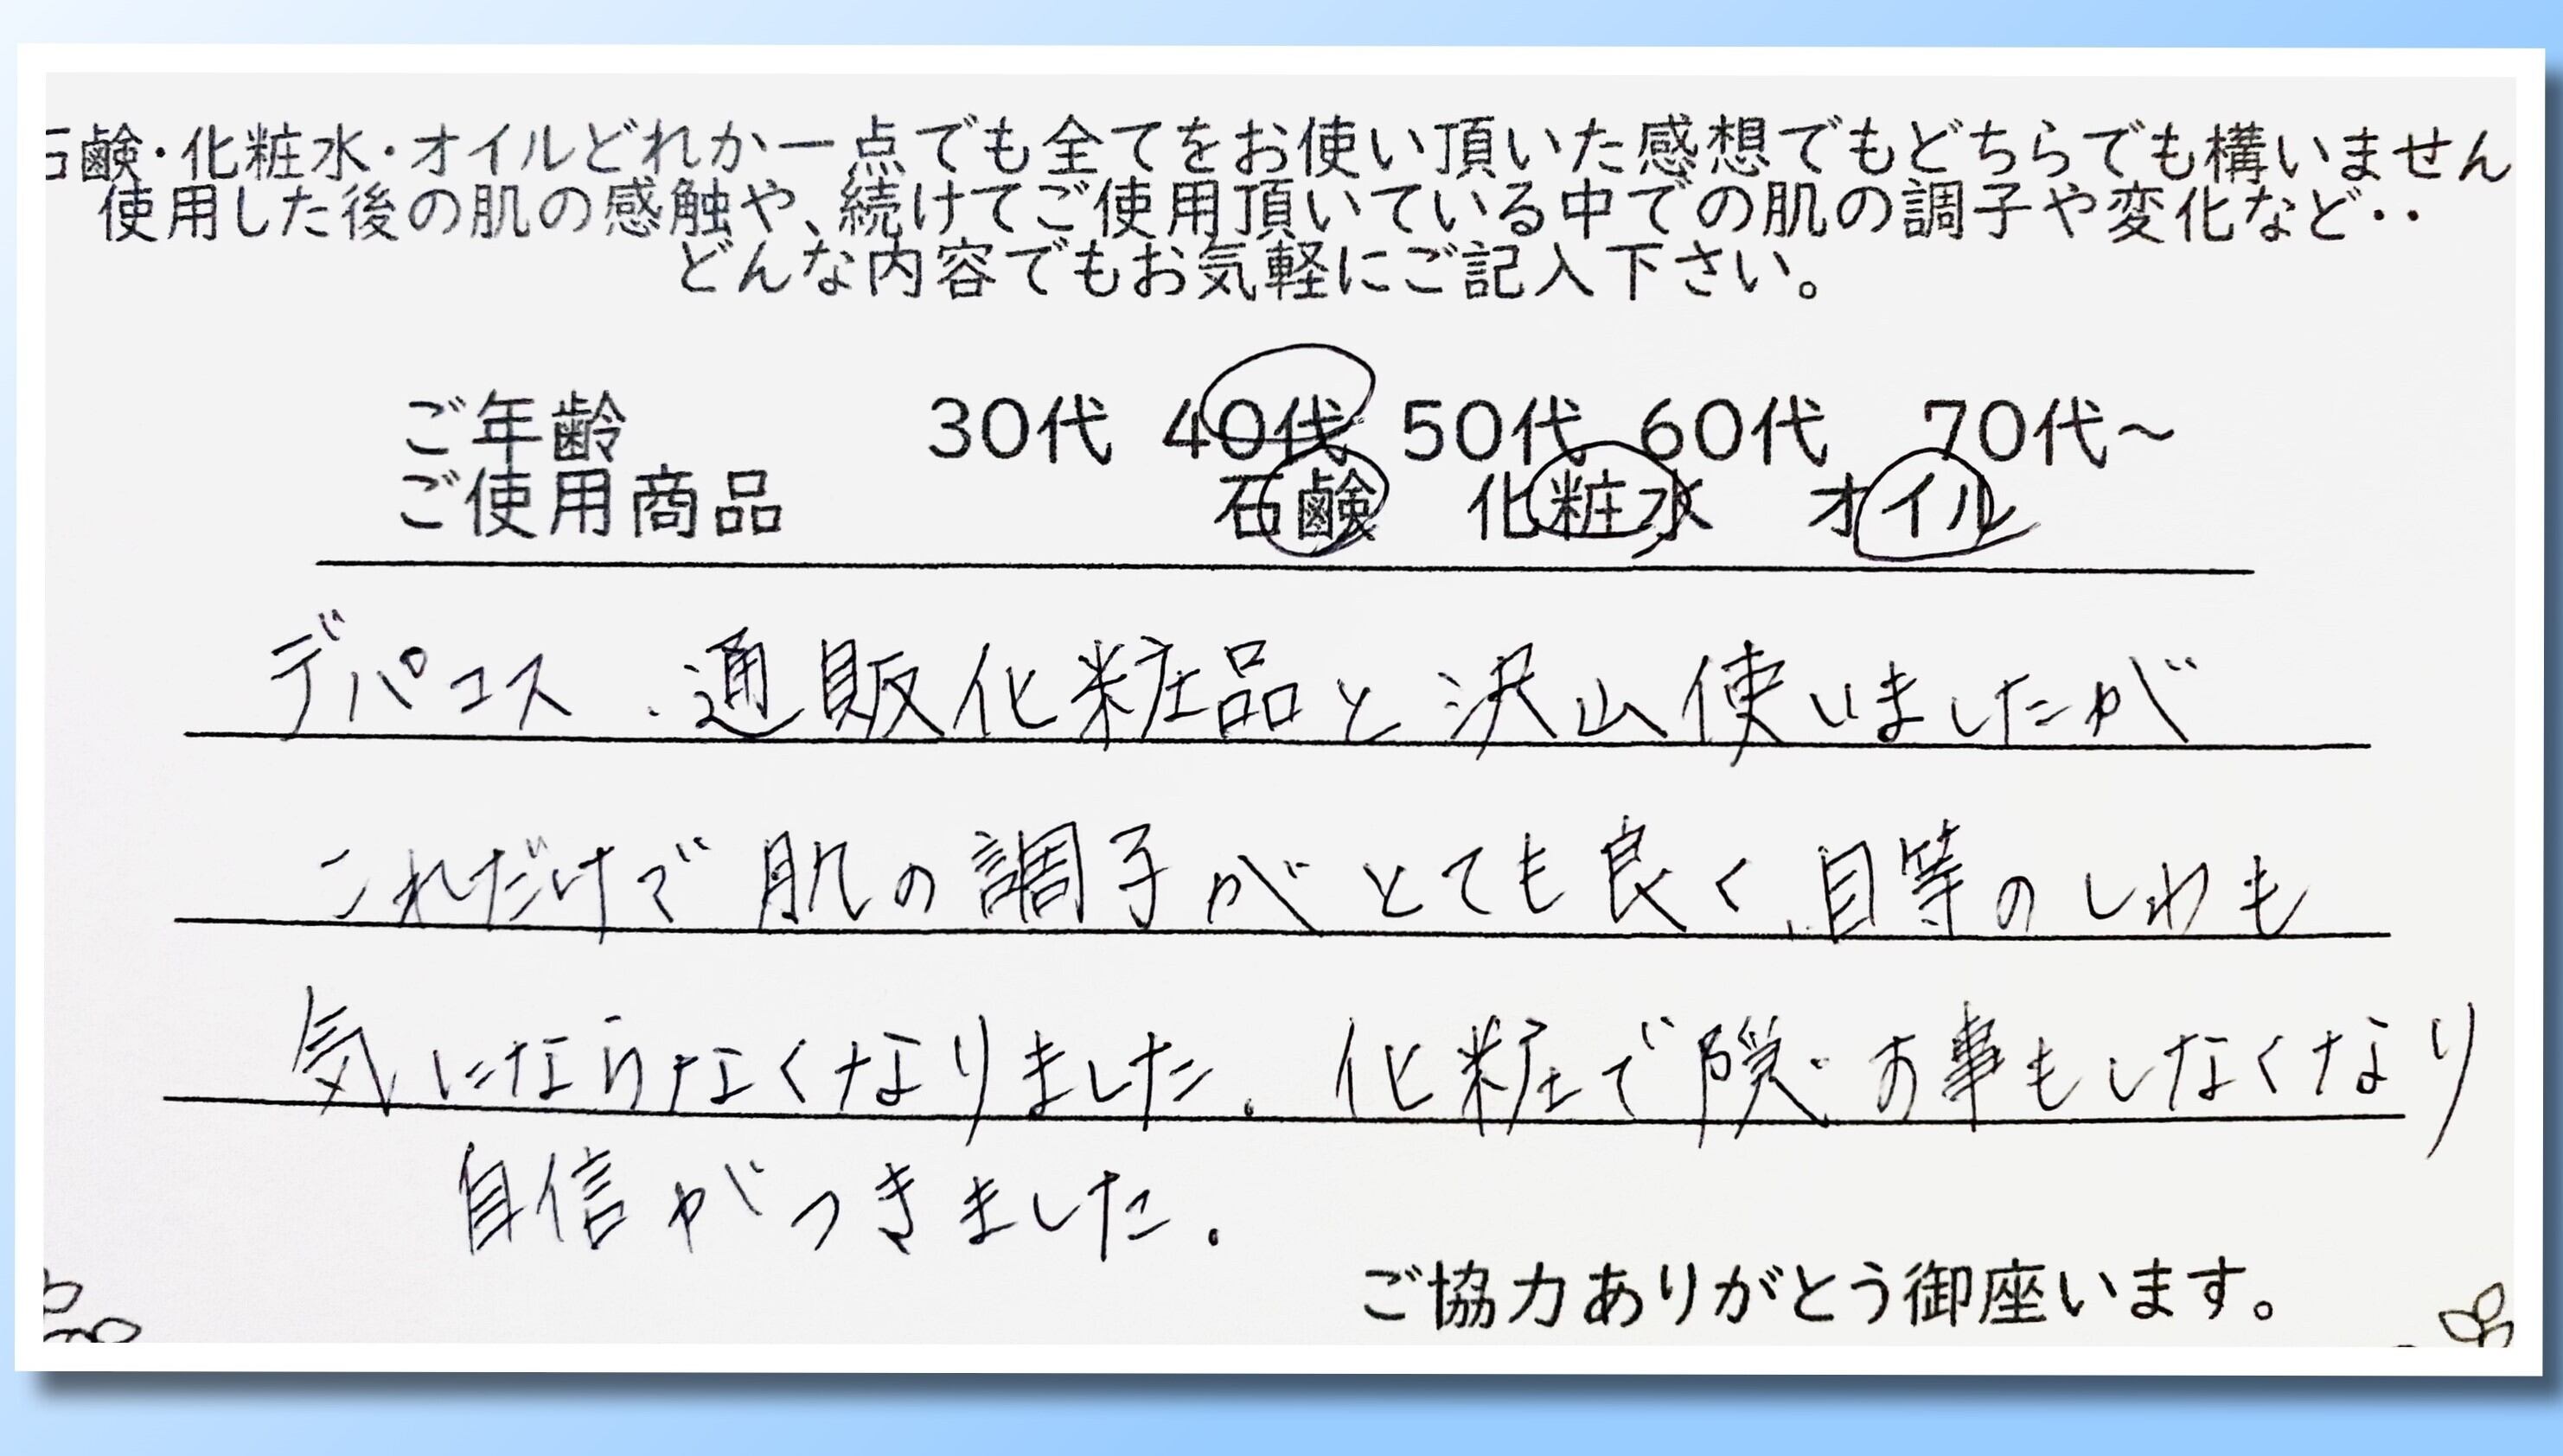 石鹸・化粧水・オイルどれか一点でも全てをお使い頂いた感想でもどちらでも構いません
使用した後の肌の感触や、続けてご使用頂いている中での肌の調子や変化など・・
どんな内容でもお気軽にご記入下さい。
ご年齢 30代 40代 50代 60代 70代～
ご使用商品 石鹸 化粧水 オイル
デパコス、通販化粧品と沢山使いましたが
これだけで肌の調子がとても良く、目等のしわも
気にならなくなりました。化粧で隠す事もしなくなり
自信がつきました。
ご協力ありがとう御座います。